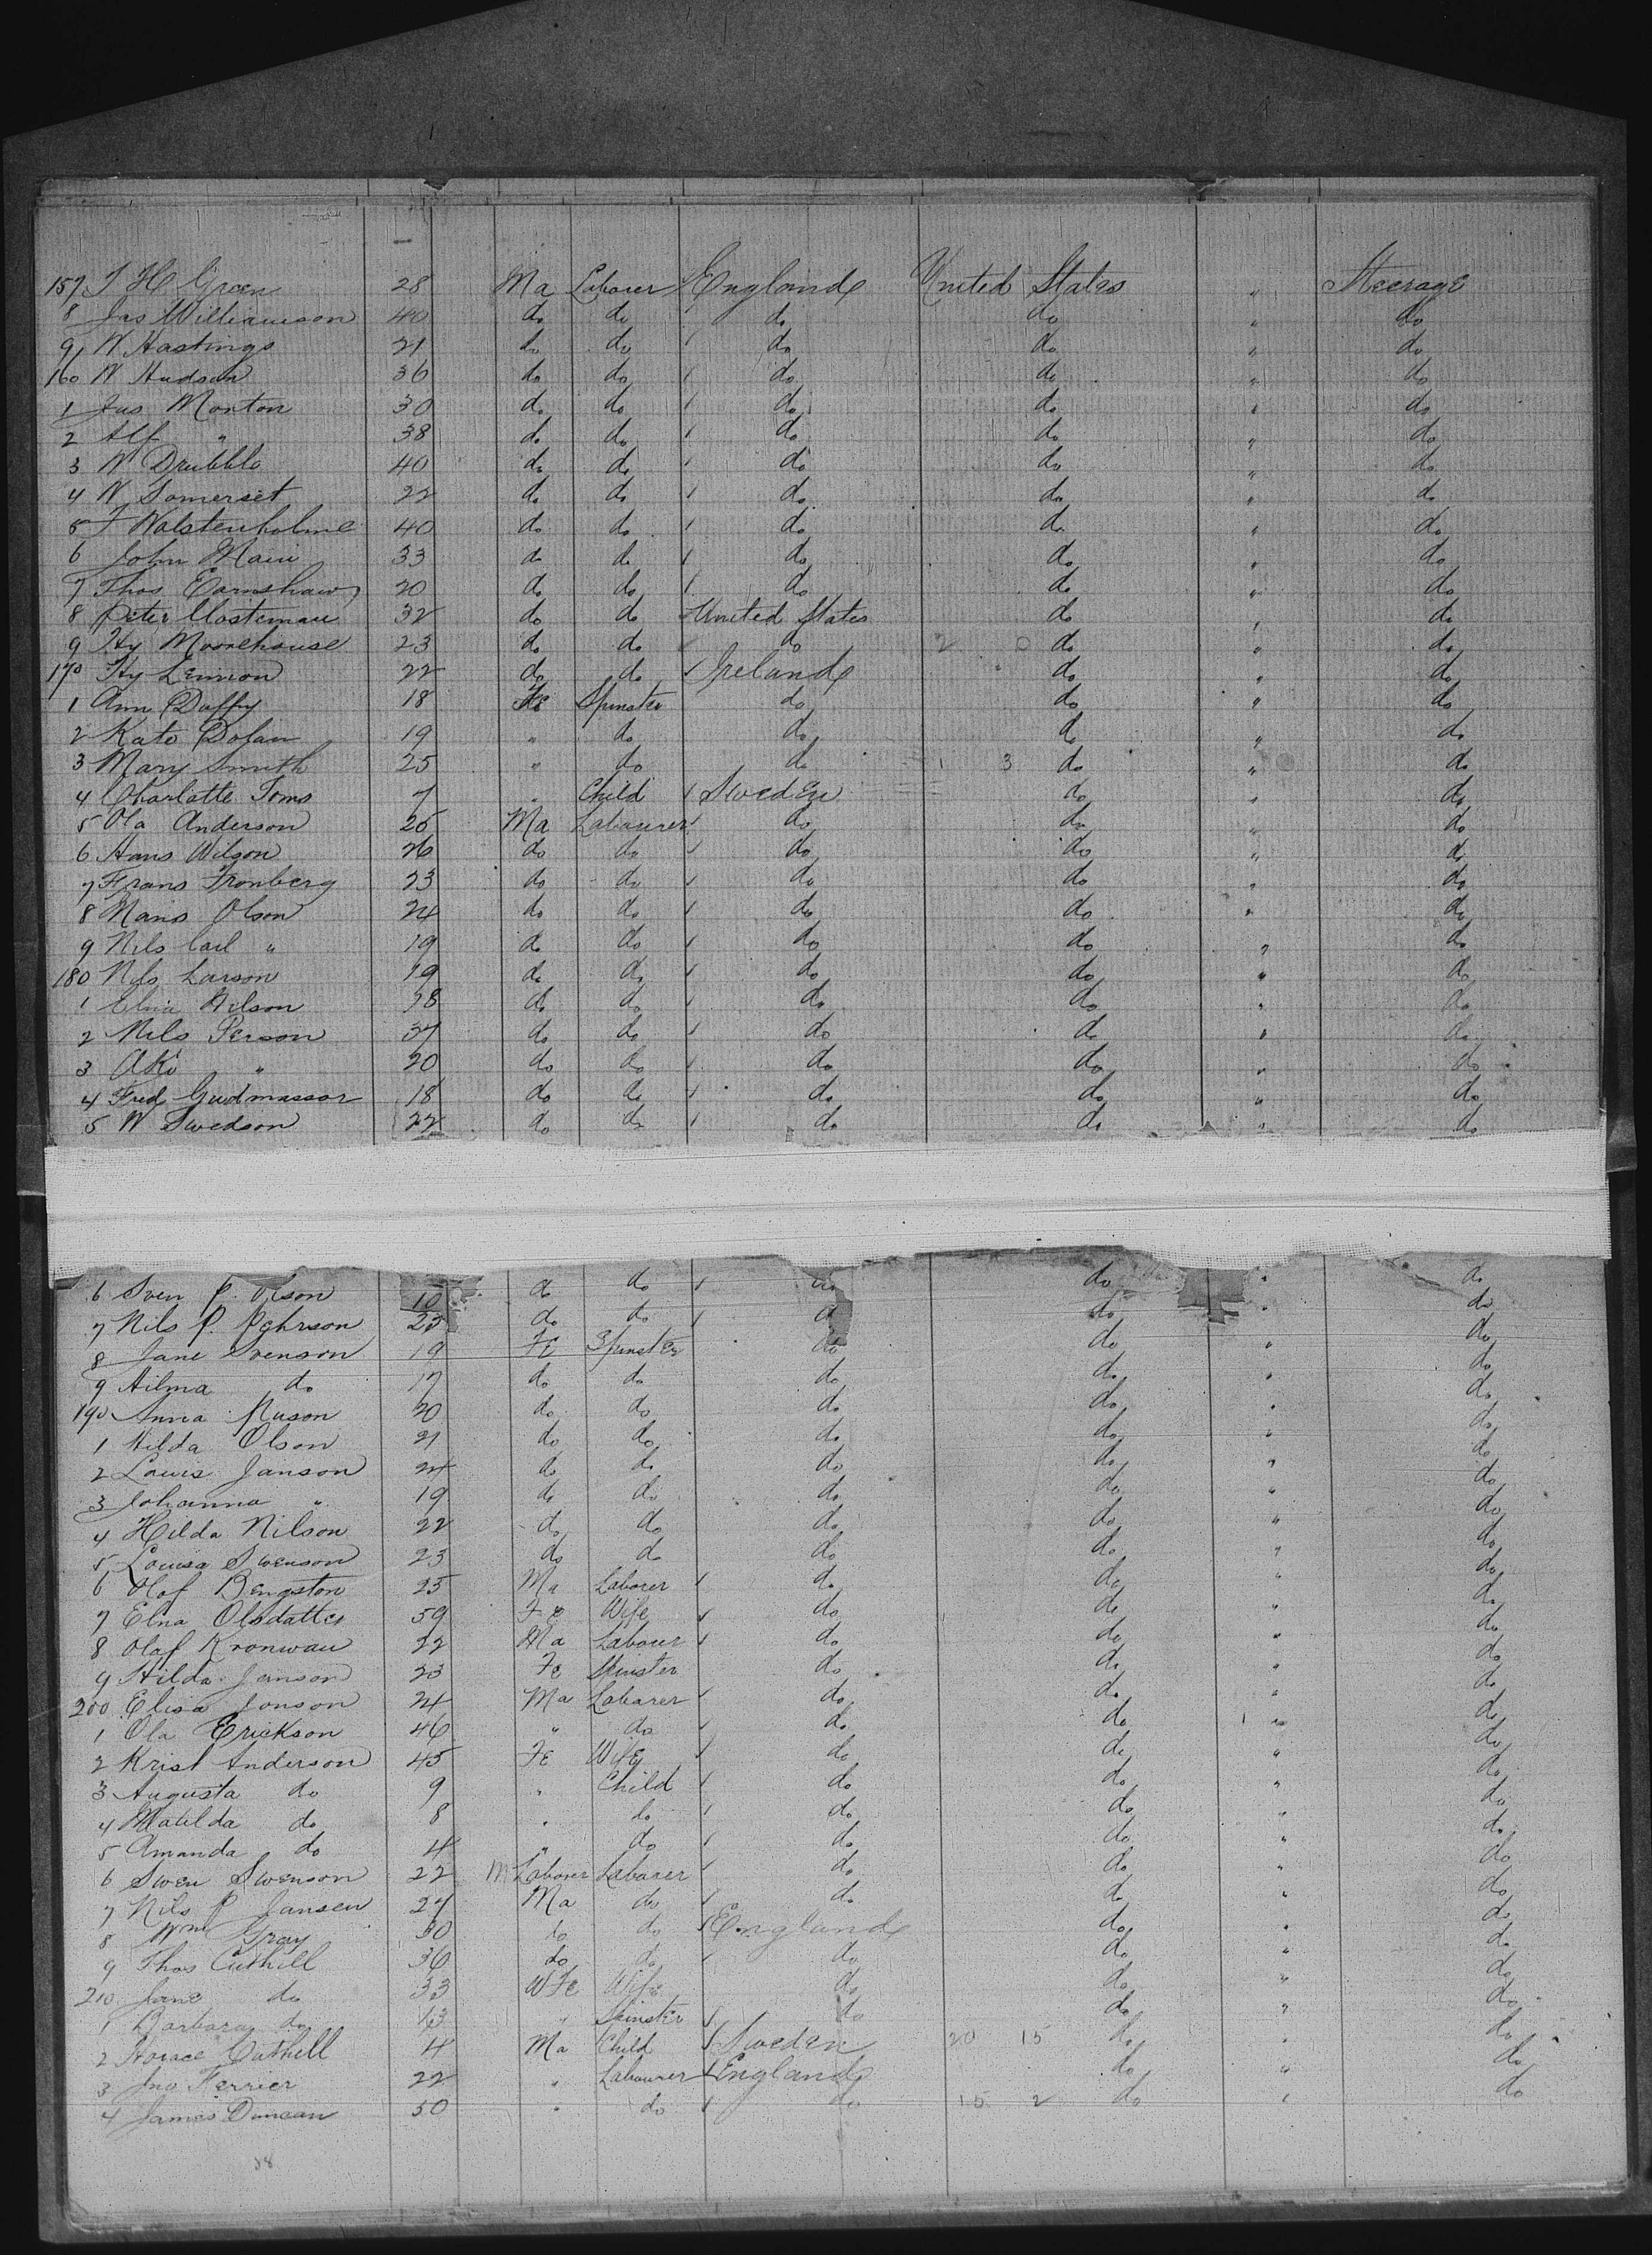 157 T H Green 28 Ma Laborer England United States " Steerage
8 Jas Williamson 40 do do do do " do
9 W Hastings 21 do do do do " do
160 W Hudson 36 do do do do " do
1 Jas Morton 30 do do do do " do
2 Alf " 38 do do do do " do
3 W Drubble 40 do do do do " do
4 W Somerset 22 do do do do " do
5 F Wolstenholme 40 do do do do " do
6 John Maw 33 do do do do " do
7 Thos Earnshaw 20 do do do do " do
8 Peter Mosteman 32 do do United States do " do
9 Hy Moorehouse 23 do do do 2 0 do " do
170 Hy Lennon 22 do do Ireland do " do
1 Ann Duffy 18 Fe Spinster do do " do
2 Kate Dolan 19 " do do do " do
3 Mary Smith 25 " do do 1 3 do " do
4 Charlotte Toms 7 " Child Sweden do " do
5 Ola Anderson 25 Ma Labourer do do " do
6 Hans Wilson 26 do do do do " do
7 Frans Tronberg 23 do do do do " do
8 Nans Olson 24 do do do do " do
9 Nils Carl " 19 do do do do " do
180 Nils Larson 19 do do do do " do
1 Elna Nilson 38 do do do do " do
2 Nils Person 37 do do do do " do
3 Ake " 20 do do do do " do
4 Fred Gudmassor 18 do do do do " do
5 W Swedson 22 do do do do " do
6 Sven P. Olson 10 do do do do " do
7 Nils P. Pehrson 25 do do do do " do
8 Jane Svenson 19 Fe Spinster do do " do
9 Hilma do 17 do do do do " do
190 Anna Nuson 20 do do do do " do
1 Hilda Olson 21 do do do do " do
2 Louis Janson 24 do do do do " do
3 Johanna " 19 do do do do " do
4 Hilda Nilson 22 do do do do " do
5 Louisa Swenson 23 do do do do " do
6 Olof Bengston 25 Ma Laborer do do " do
7 Elna Olsdatter 59 Fe Wife do do " do
8 Olof Kronwau 22 Ma Labour do do " do
9 Hilda Janson 23 Fe Spinster do do " do
200 Elisa Jonson 24 Ma Laborer do do " do
1 Ola Erickson 46 " do do do " do
2 Krist Anderson 45 Fe Wife do do " do
3 Augusta do 9 " Child do do " do
4 Matilda do 8 " do do do " do
5 Amanda do 4 " do do do " do
6 Swen Swenson 22 M Laborer Laborer do do " do
7 Nils P Jansen 27 Ma do do do " do
8 Wm Gray 30 do do England do " do
9 Thos Cuthill 36 do do do do " do
210 Jane do 33 W Fe Wife do do " do
1 Barbara do 13 " Spinster do do " do
2 Horace Cuthell 4 Ma Child Sweden 20 15 do " do
3 Jno Ferrier 22 " Labourer England do " do
4 James Duncan 50 " do do 15 2 do " do